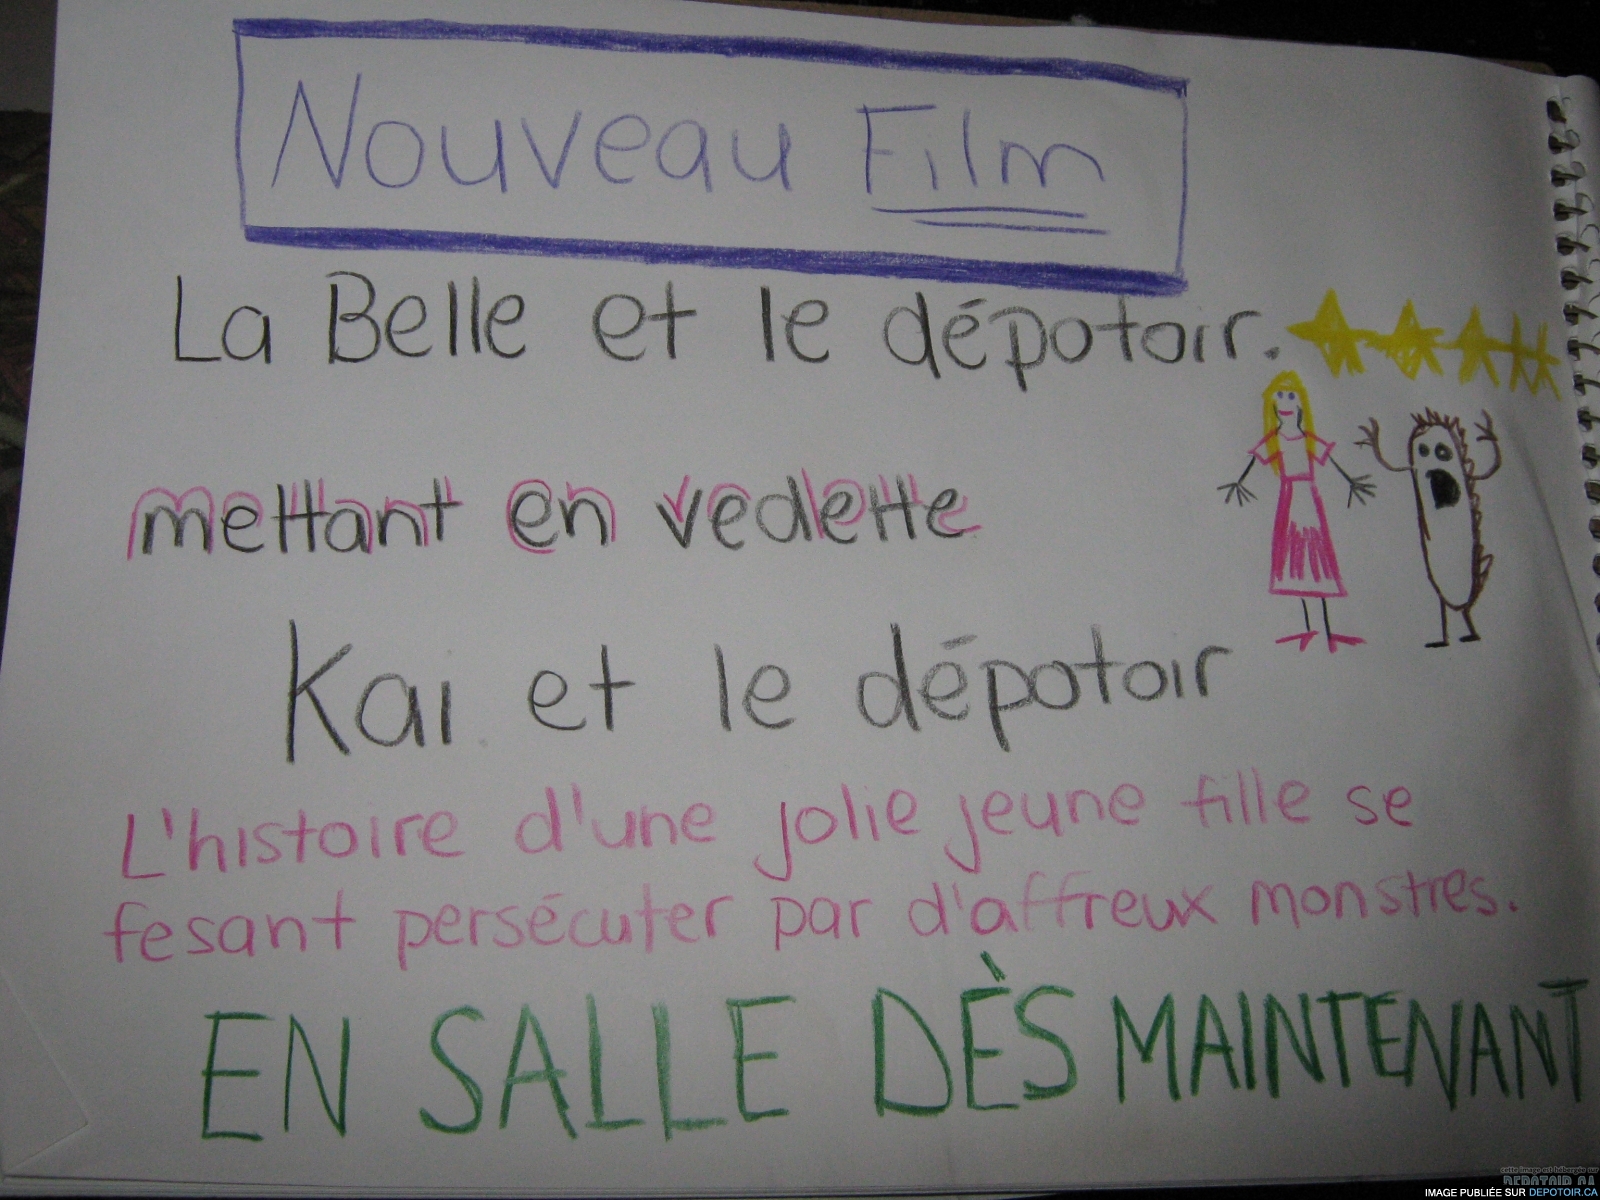 Nouveau Film
La Belle et le dépotoir.
mettant en vedette
Kai et le dépotoir
L'histoire d'une jolie jeune fille se
fesant persécuter par d'affreux monstres.
EN SALLE DÈS MAINTENANT
cette image est hébergée sur
DEPOTOIR.CA
IMAGE PUBLIÉE SUR DEPOTOIR.CA